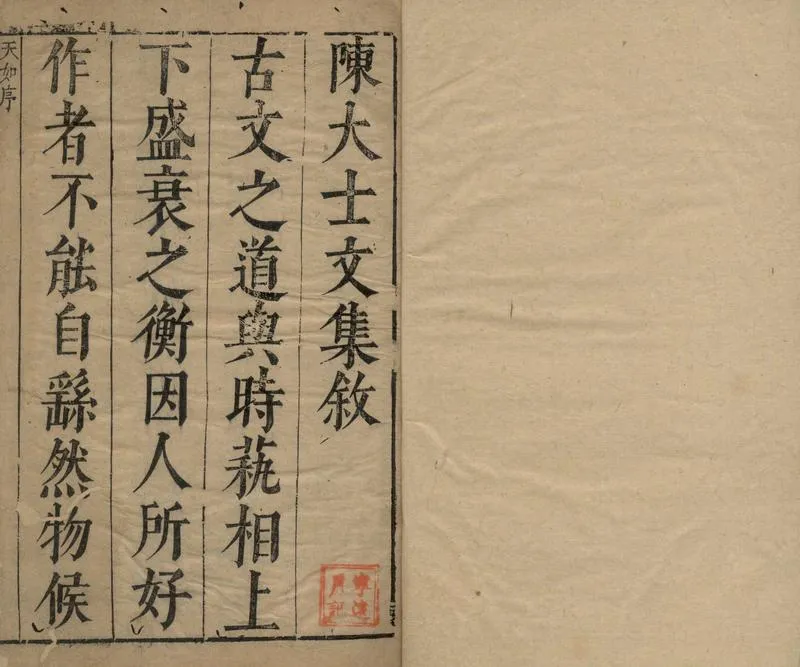 陳大士文集敘
古文之道與時蓺相上
下盛衰之衡因人所好
作者不能自繇然物候
天如序